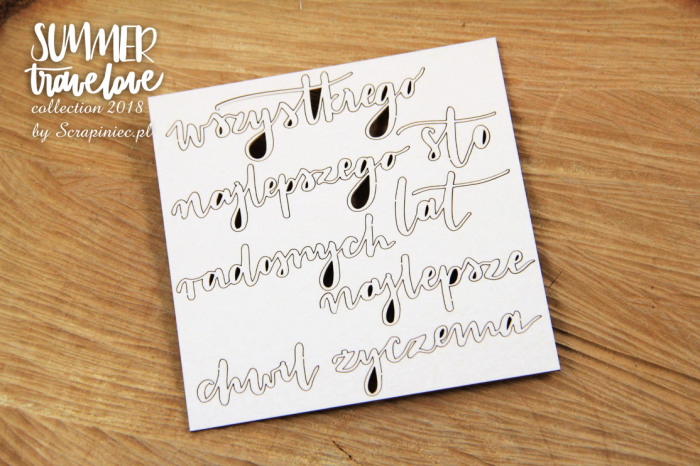 SUMMER
travelove
collection 2018
by Scrapiniec.pl
wszystkiego
najlepszego sto
radosnych lat
najlepsze
chwil życzenia